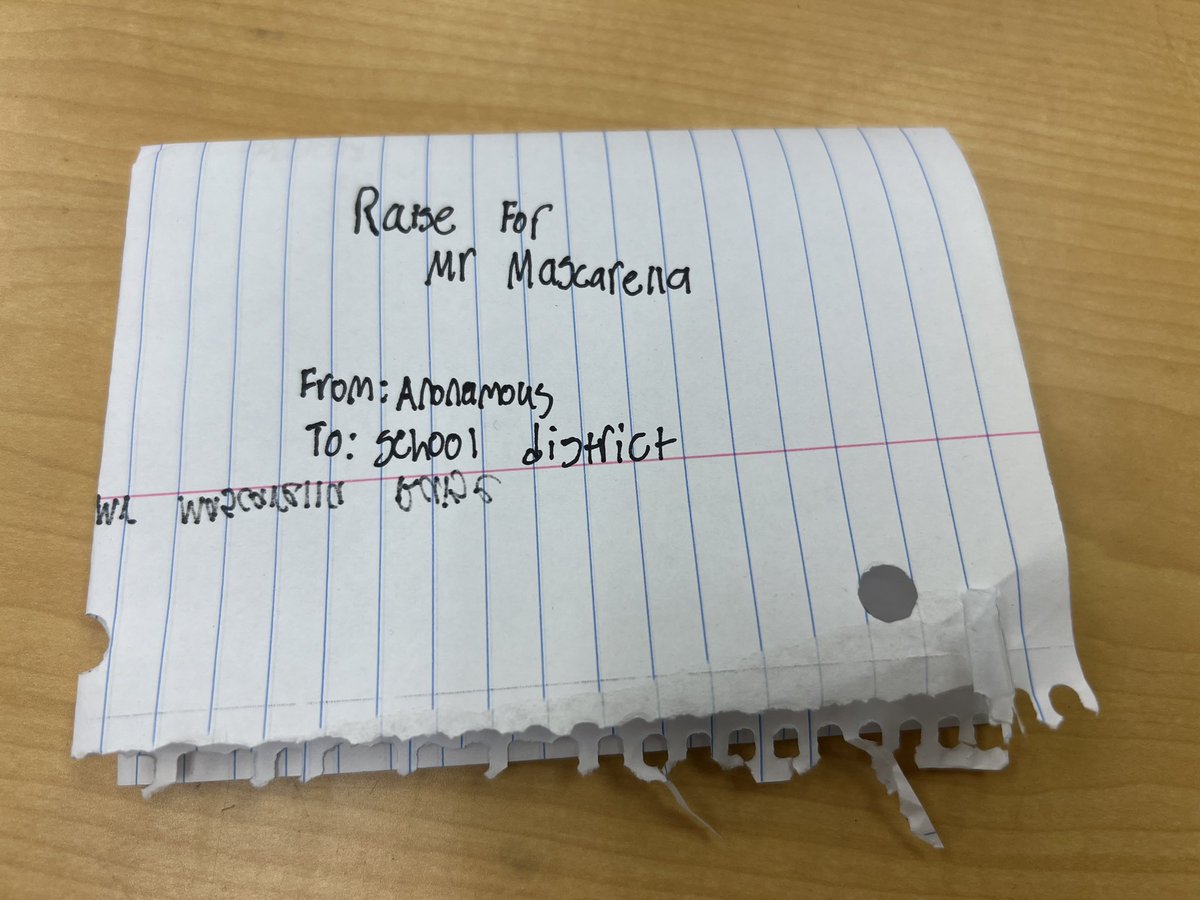 Raise For
Mr Mascarena
From: Anonamous
To: school district
Mr Mascarena